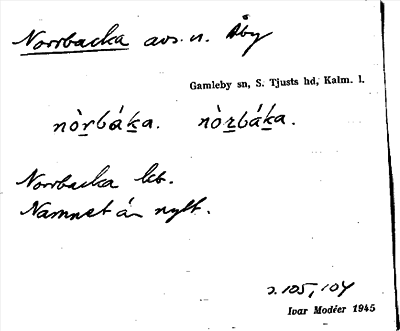 Norrbacka avs. n. Åby
Gamleby sn, S. Tjusts hd, Kalm. l.
nòrbáka. nòrbáka.
Norrbacka lt.
Namnet är nytt.
s. 105, 104
Ivar Modéer 1945